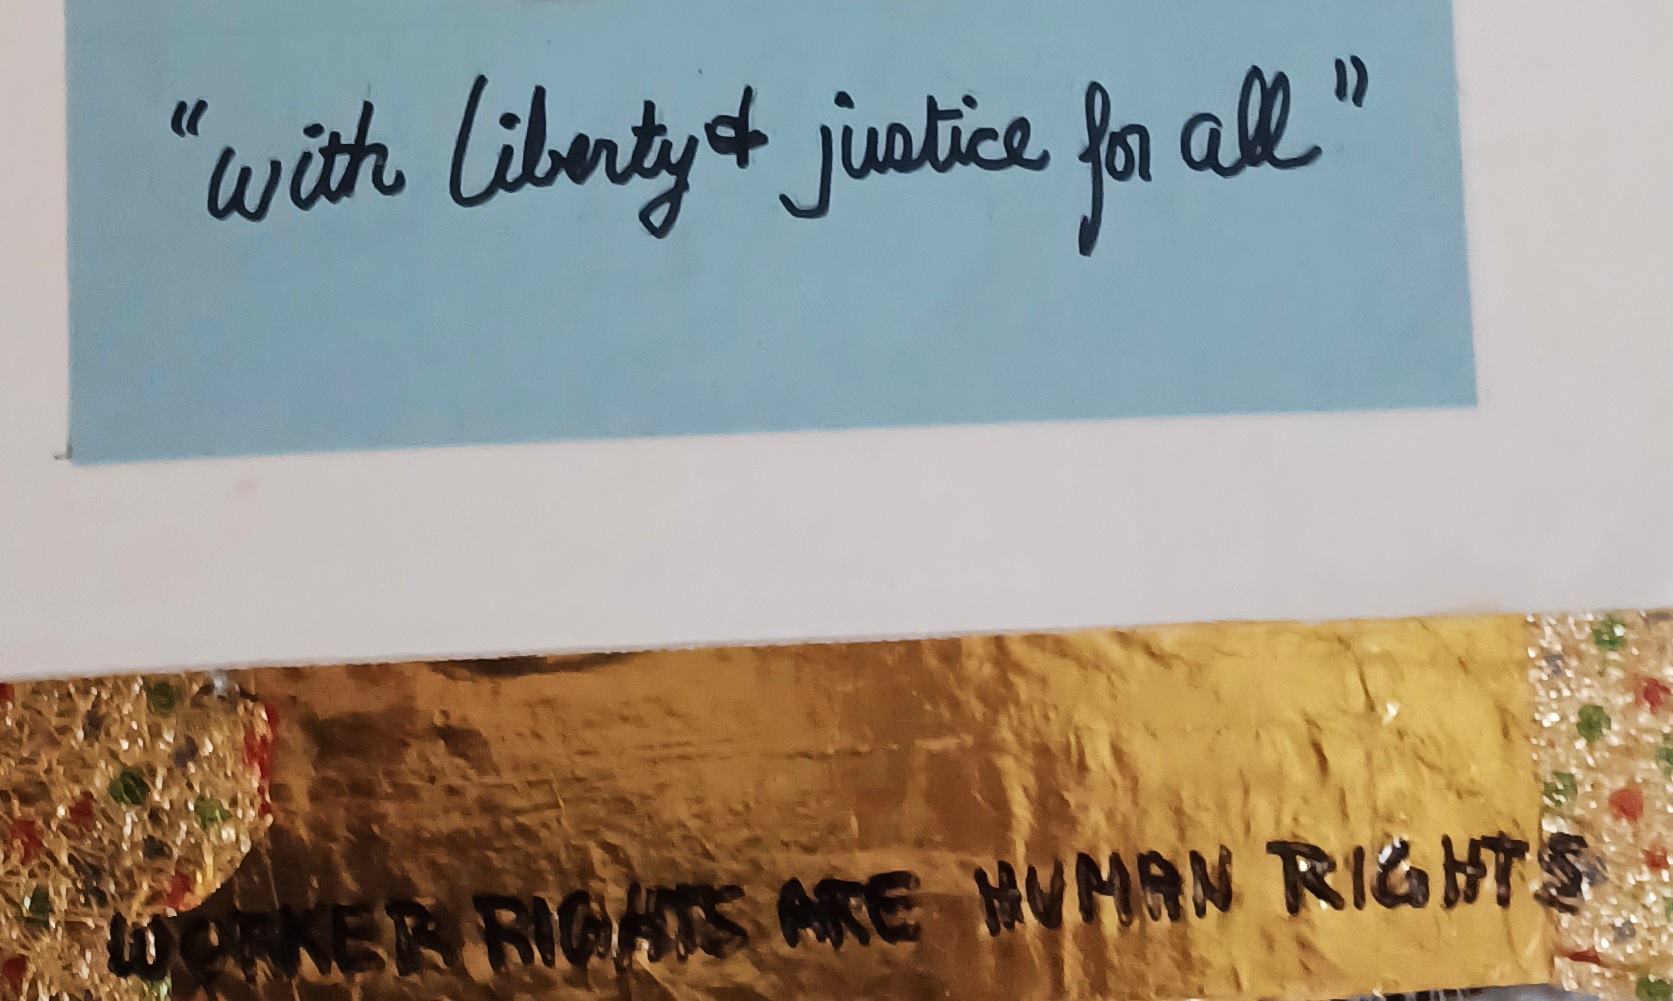 "with liberty & justice for all"
WORKER RIGHTS ARE HUMAN RIGHTS